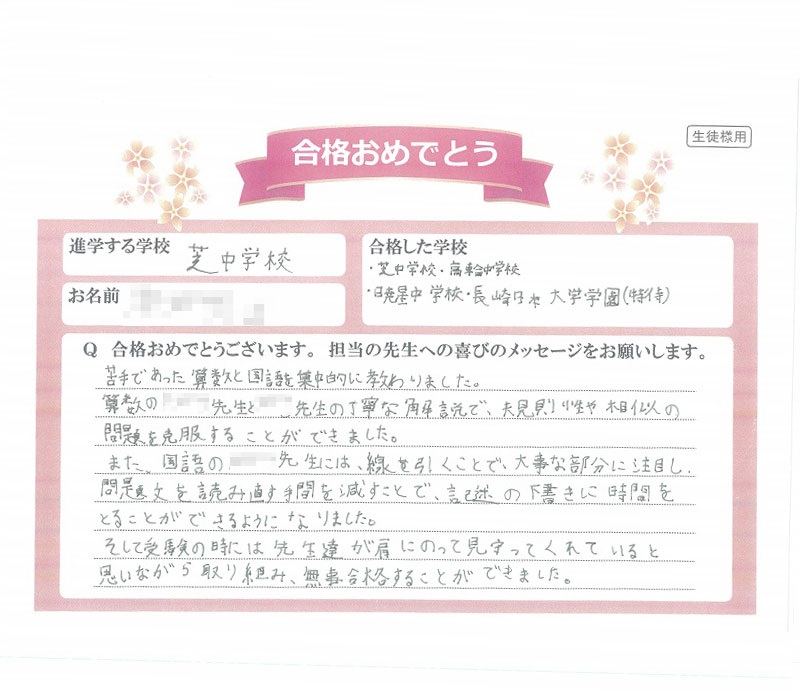 生徒様用
合格おめでとう
進学する学校 芝中学校
お名前
合格した学校
・芝中学校・高輪中学校
・暁星中学校・長崎日本大学学園(特待)
Q 合格おめでとうございます。担当の先生への喜びのメッセージをお願いします。
苦手であった算数と国語を集中的に教わりました。
算数の 先生と 先生の丁寧な解説で、規則性や相似の
問題を克服することができました。
また、国語の 先生には、線を引くことで、大事な部分に注目し、
問題文を読み直す手間を減すことで、記述の下書きに時間を
とることができるようになりました。
そして受験の時には先生達が肩にのって見守ってくれていると
思いながら取り組み、無事合格することができました。